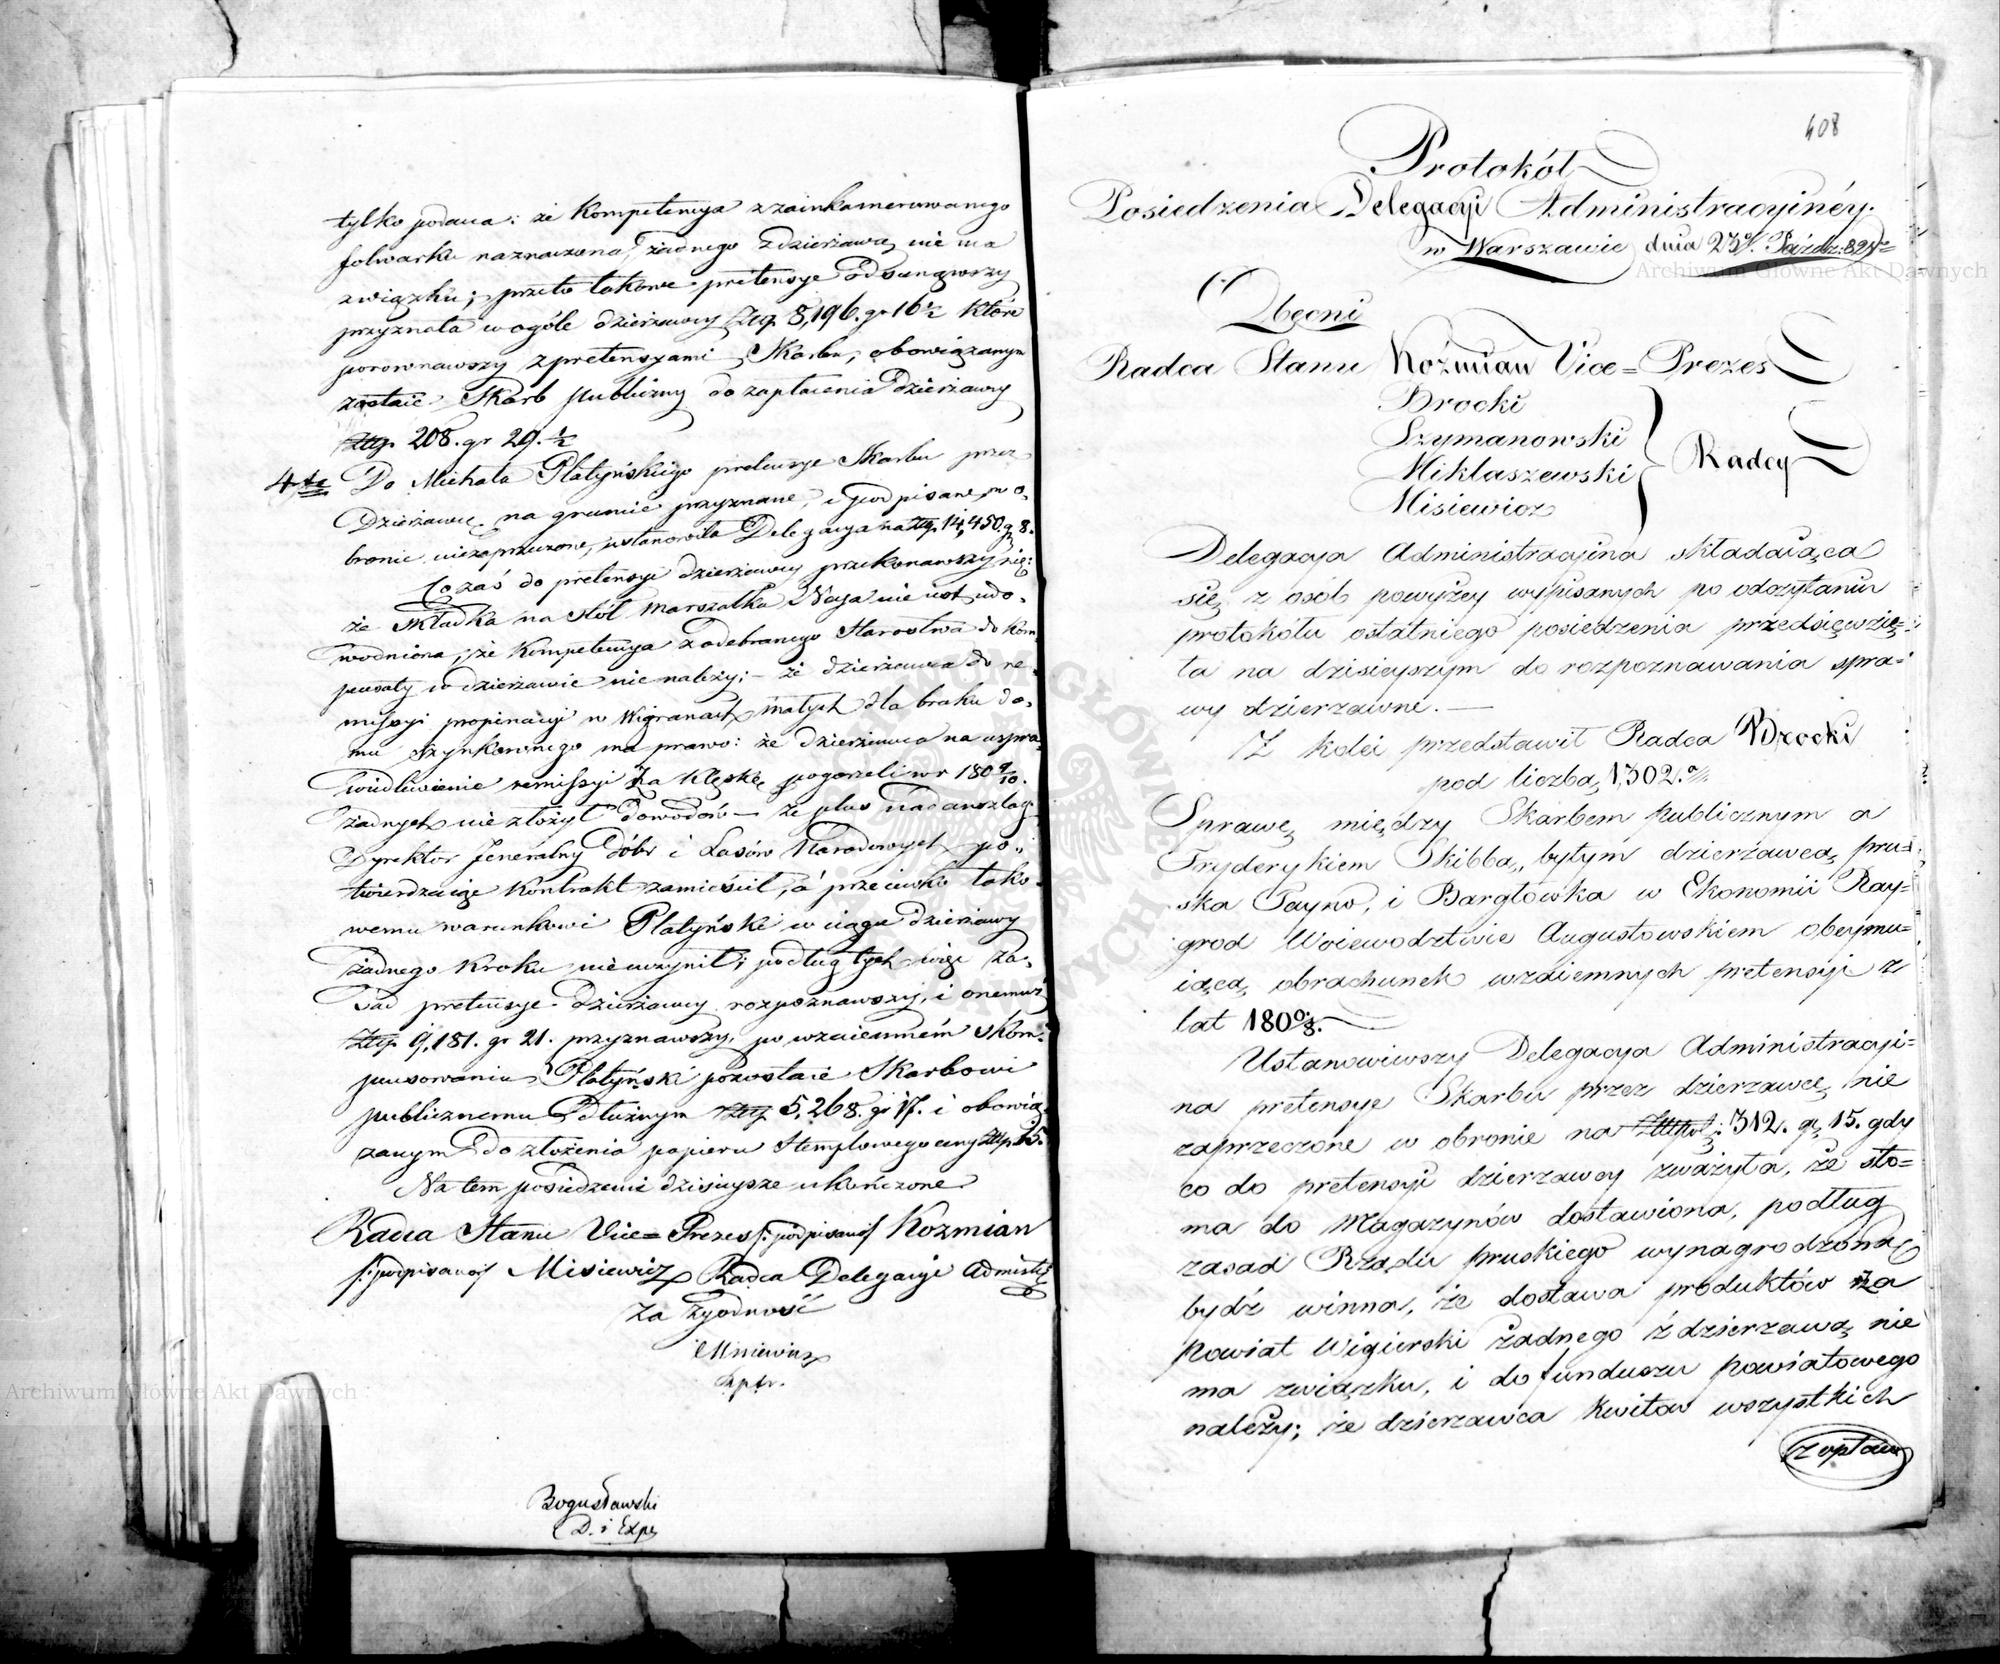 tylko podaua: że Kompetencya z zainkamerowanego
folwarku naznaczona, żadnego z dzierżawą nie ma
związku; przeto takowe pretensye odsunąwszy
przyznała w ogóle dzierżawcy Złłp 8,196. gr 16 1/2 które
porównawszy z pretensyami Skarbu, obowiązanym
zostaie Skarb publiczny do zapłacenia dzierżawcy
Złłp 208. gr 29. 1/2
4te Do Michała Płatyńskiego pretensye Skarbu przez
Dzierżawcę na gruncie przyznane, i podpisane, w o=
bronie niezaprzeczone, ustanowiła Delegacya na Złłp. 14,450. g 8.
Co zaś do pretensyi dzierżawcy przekonawszy się:
że składka na stół Marszałka Neya nie iest udo=
wodniona; że Kompetencya z odebranego Starostwa do kom=
pensaty w dzierżawie nie należy; — że dzierżawca do re=
missyi propinacyi w Wigranach małych dla braku do=
mu szynkownego ma prawo: że dzierżawca na uspra=
wiedliwienie remissyi za klęskę pogorzeli w r 1809/10.
żadnych nie złożył dowodów — że plus nad anszlag
Dyrektor Jeneralny Dóbr i Lasów Narodowych po=
twierdzaiąc Kontrakt zamieścił, a przeciwko tako=
wemu warunkowi Płatyński w ciągu dzierżawy
żadnego kroku nie uczynił; podług tych więc za=
sad pretensye dzierżawcy rozpoznawszy, i onemuż
Złłp 9,181. gr 21. przyznawszy, po wzaiemném skom=
pensowaniu Płatyński pozostaie Skarbowi
publicznemu dłużnym Złłp 5,268. gr 17. i obowią=
zanym do złożenia papieru Stemplowego ceny Złłp 15.
Na tem posiedzenie dzisieysze ukończone
Radca Stanu Vice=Prezes /: podpisano :/ Koźmian
/: podpisano :/ Misiewicz Radca Delegacyi Administ:
Za zgodność
Bogusławski
D. i Exp
408
Protokół
Posiedzenia Delegacyi Administracyinéy.
w Warszawie dnia 23o. Paźdz: 821 r=
Obecni
Radca Stanu Koźmian Vice=Prezes
Brocki
Szymanowski
Miklaszewski
Misiewicz
Radcy
Delegacya Administracyina składaiąca
się z osób powyżey wypisanych po odczytaniu
protokółu ostatniego posiedzenia przedsięwzię=
ta na dzisieyszym do rozpoznawania spra=
wy dzierżawne. —
Z kolei przedstawił Radca Brocki
pod liczbą 1,302.
Sprawę między Skarbem publicznym a
Fryderykiem Skibba, byłym dzierżawcą pru=
ska Tayno, i Bargłówka w Ekonomii Ray=
grod Woiewodztwie Augustowskiem obeymu=
iącą obrachunek wzaiemnych pretensyi z
lat 180
Ustanowiwszy Delegacya Administracyi=
na pretensye Skarbu przez dzierżawcę nie
zaprzeczone w obronie na Złłpol: 312. gr. 15. gdy
co do pretensyi dzierżawcy zważyła, że sło=
ma do Magazynów dostawiona, podług
zasad Rządu pruskiego wynagrodzoną
bydź winna, że dostawa produktów za
powiat Wigierski żadnego z dzierżawą nie
ma związku, i do funduszu powiatowego
należy; że dzierżawca kwitów wszystkich